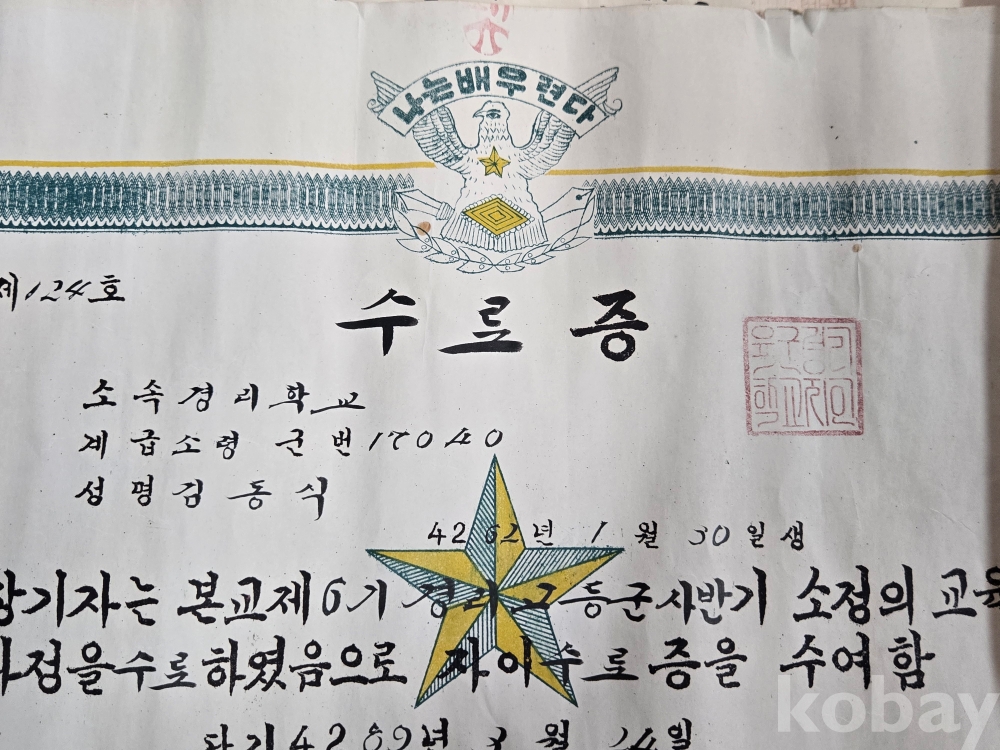 나는배우련다
제124호
수료증
소속경리학교
계급소령 군번17040
성명김동식
4262년 1월 30일생
상기자는 본교제6기 경리고등군사반기 소정의 교육
과정을수료하였음으로 자이수료증을 수여함
단기4289년 3월 24일
kobay